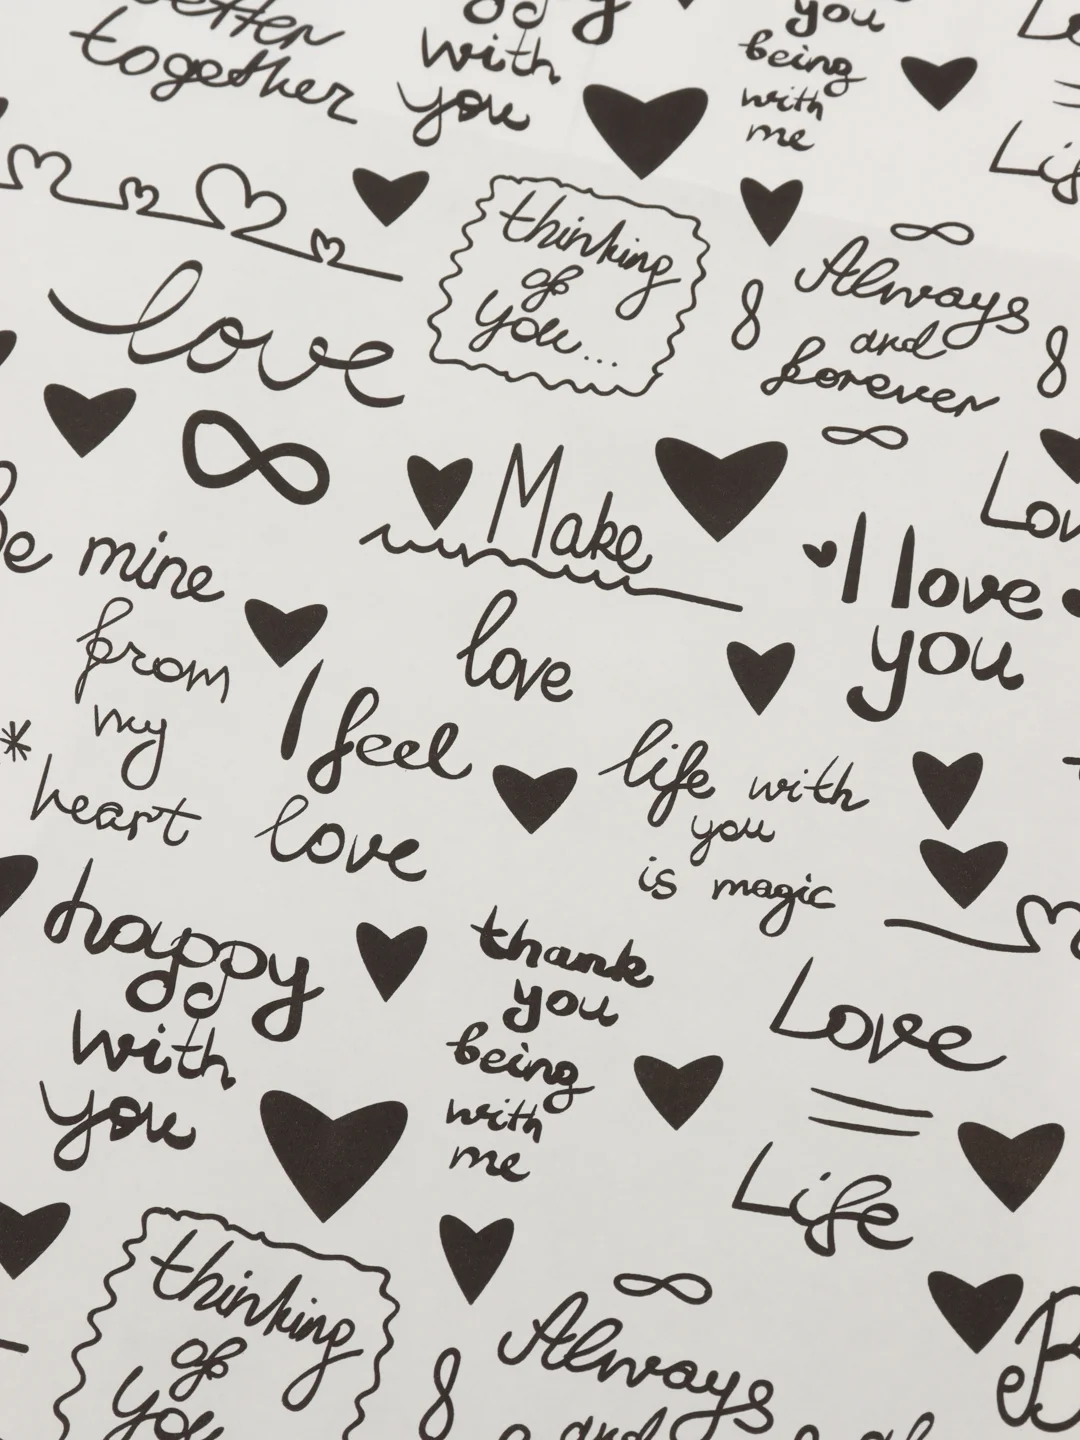 better
together
with
you
you
being
with
me
thinking
of
you...
Always
and
forever
love
Make
love
I love
you
Be mine
from
my
heart
I feel
love
life with
you
is magic
happy
with
you
thank
you
being
with
me
Love
=
Life
thinking
of
you
Always
and